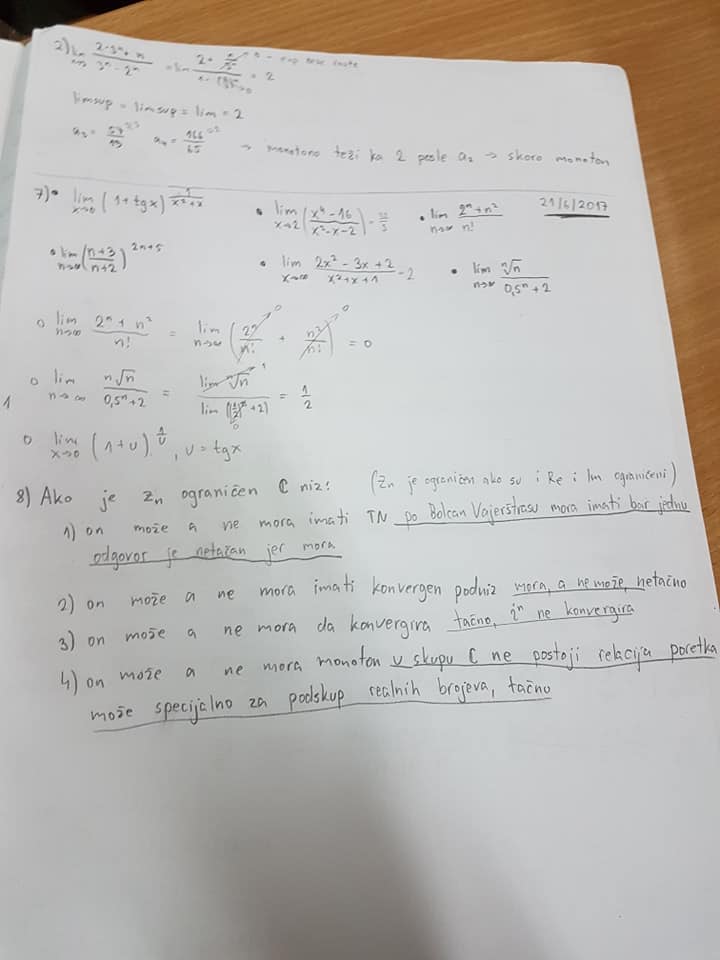 2) lim n→∞ (2·3ⁿ + n)/(3ⁿ - 2ⁿ) = lim = 2
limsup = limsup = lim = 2
→ monotono teži ka 2 posle a₂ → skoro monoton
7) • lim x→0 (1+tgx)^(1/(x²+x)) • lim x→2 (x⁴-16)/(x²-x-2) = • lim n→∞ (2ⁿ+n²)/n! 21/6/2017
• lim n→∞ ((n+3)/(n+2))^(2n+5) • lim x→∞ (2x²-3x+2)/(x²+x+1) = 2 • lim n→∞ ⁿ√n/(0,5ⁿ+2)
o lim n→∞ (2ⁿ+n²)/n! = lim n→∞ (2ⁿ/n! + n²/n!) = 0
o lim n→∞ ⁿ√n/(0,5ⁿ+2) = lim ⁿ√n / lim((1/2)ⁿ+2) = 1/2
o lim x→0 (1+u)^(1/u), u=tgx
8) Ako je Zn ograničen ℂ niz: (Zn je ograničen ako su i Re i Im ograničeni)
1) on može a ne mora imati TN po Bolcan Vajerštrasu mora imati bar jednu
odgovor je netačan jer mora
2) on može a ne mora imati konvergen podniz mora, a ne može, netačno
3) on može a ne mora da konvergira tačno, iⁿ ne konvergira
4) on može a ne mora monoton u skupu ℂ ne postoji relacija poretka
može specijalno za podskup realnih brojeva, tačno